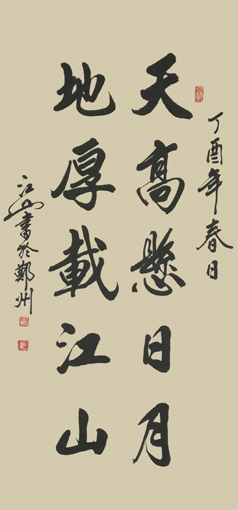 丁酉年春日
天高懸日月
地厚載江山
江山書於鄭州